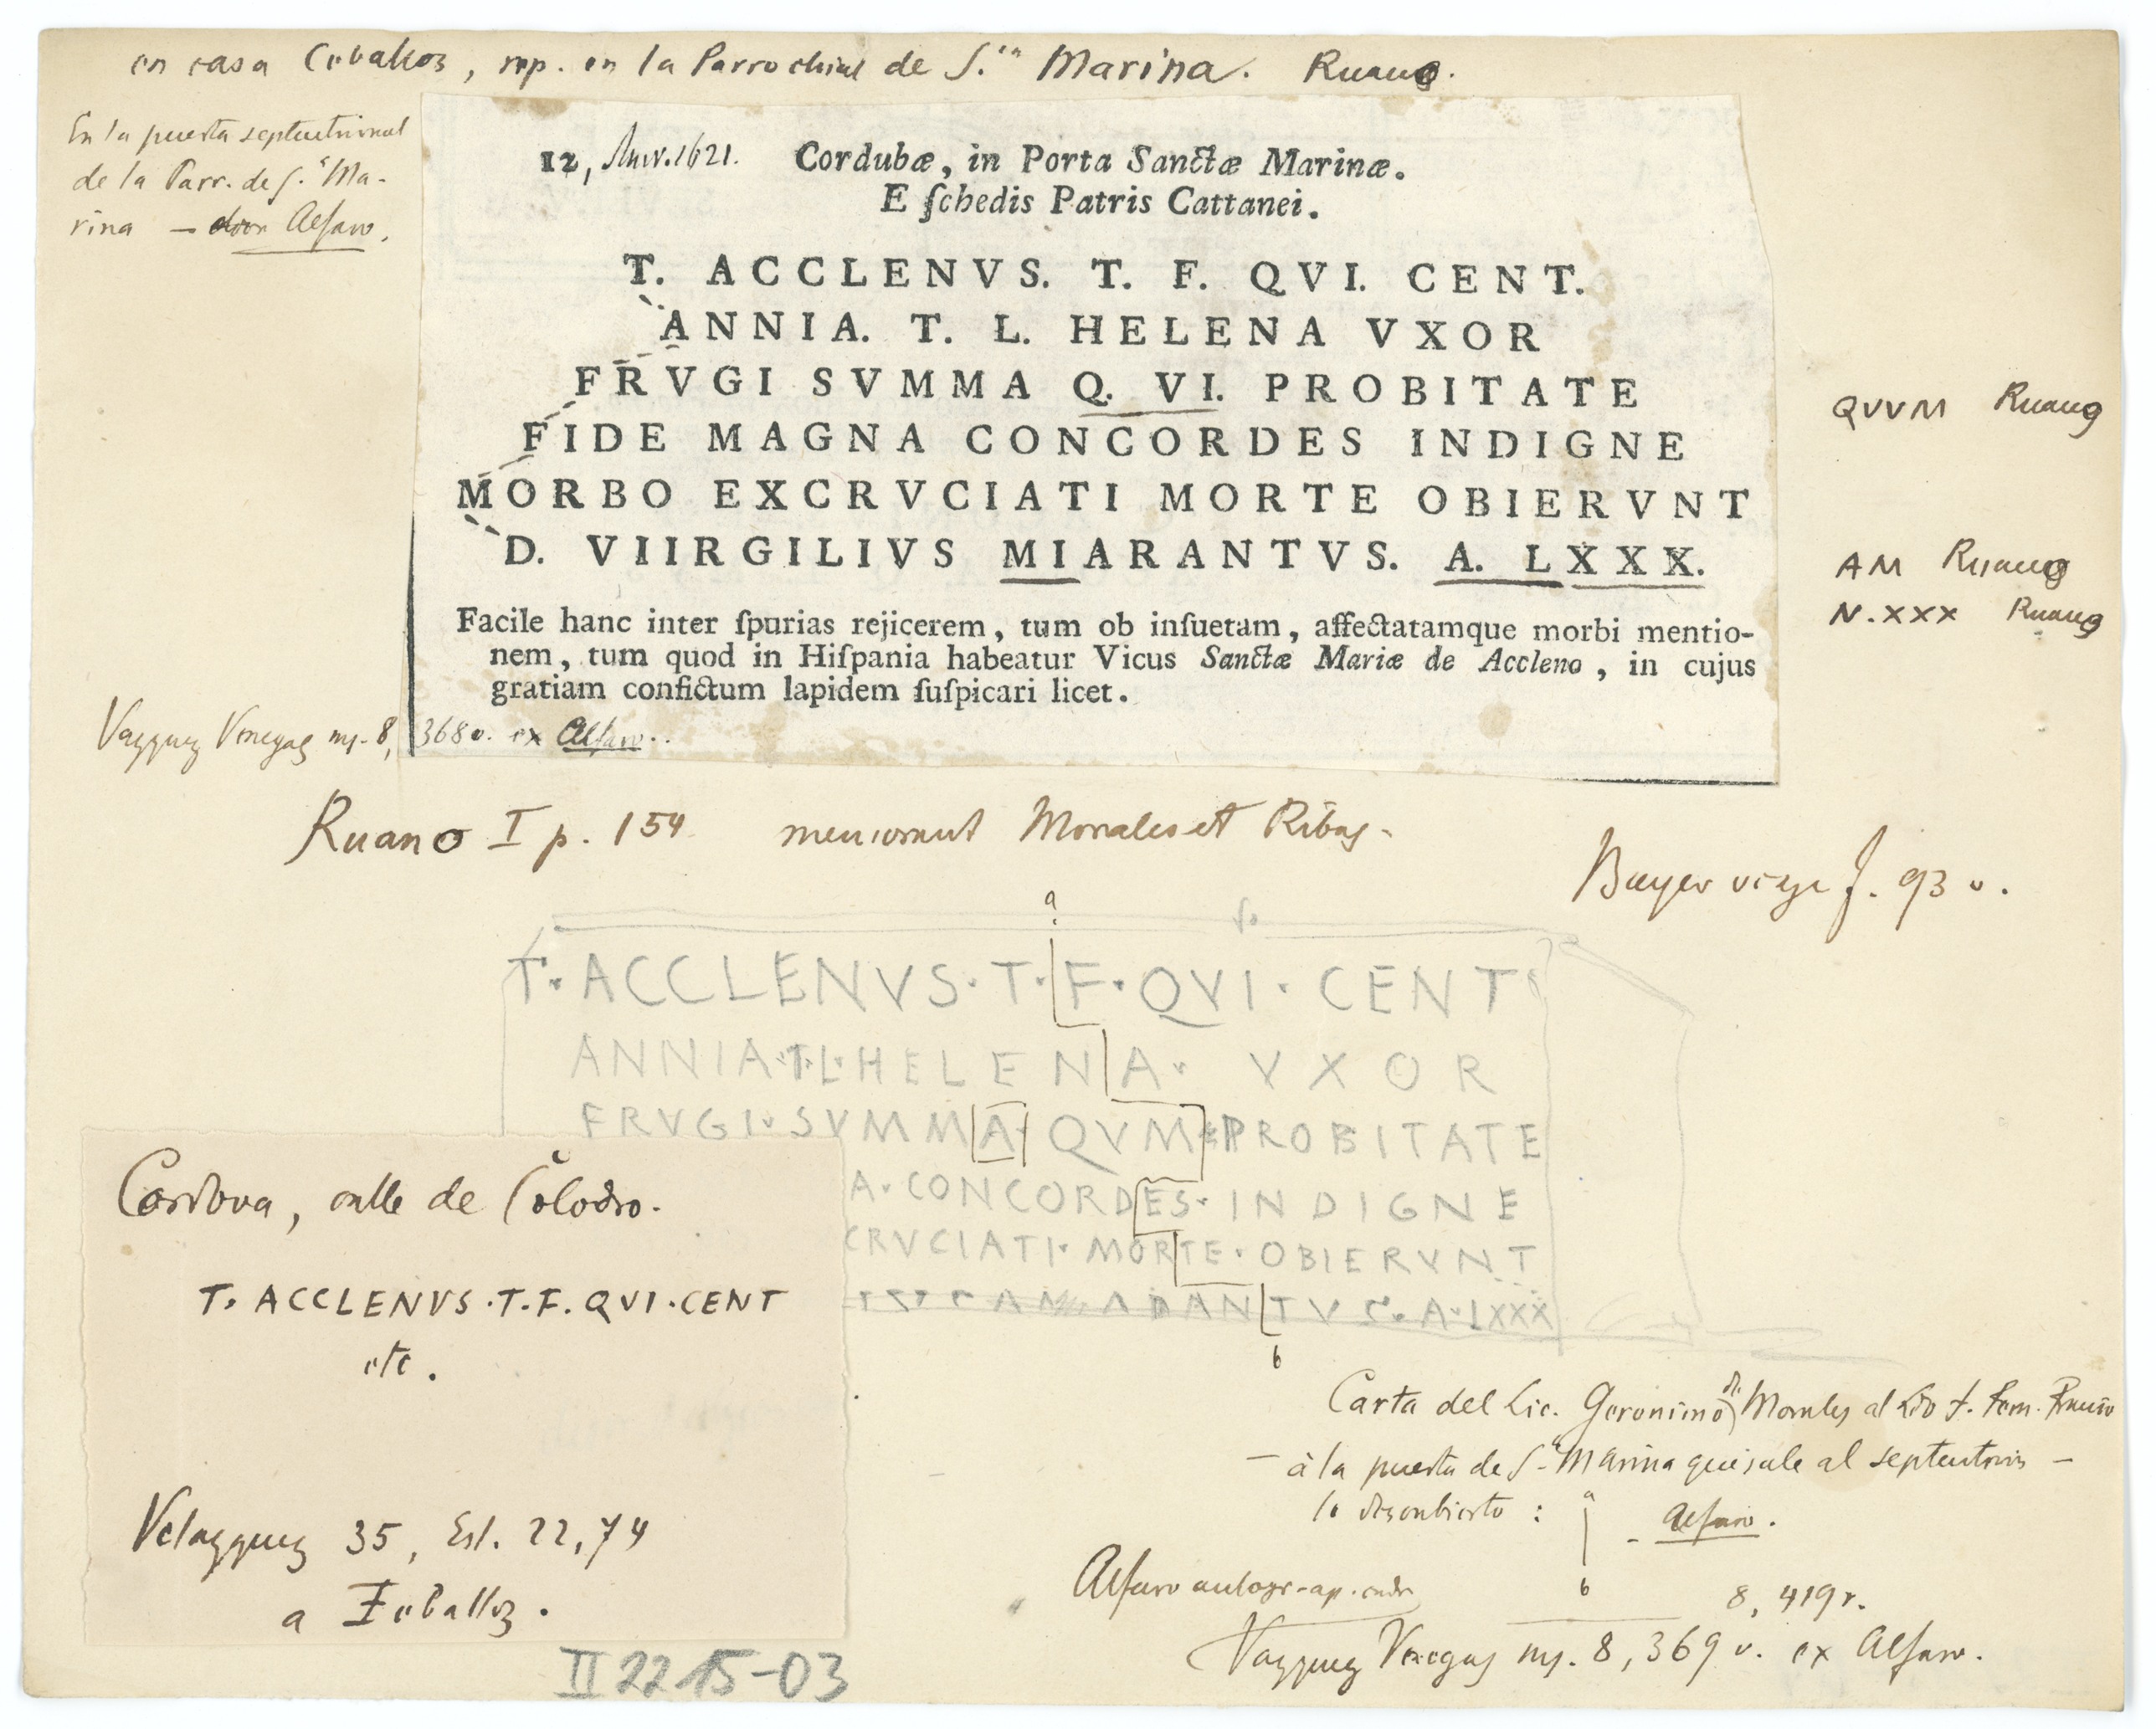 en casa Ceballos, rep. en la Parrochial de S.ta Marina. Ruano.
En la puerta septentrional
de la Parr. de S.ta Ma-
rina — Alfaro.
12, Mur. 1621. Cordubæ, in Porta Sanctæ Marinæ.
E ſchedis Patris Cattanei.
T. ACCLENVS. T. F. QVI. CENT.
ANNIA. T. L. HELENA VXOR
FRVGI SVMMA Q. VI. PROBITATE
FIDE MAGNA CONCORDES INDIGNE
MORBO EXCRVCIATI MORTE OBIERVNT
D. VIIRGILIVS MIARANTVS. A. LXXX.
QVVM Ruano
AM Ruano
N.XXX Ruano
Facile hanc inter ſpurias rejicerem, tum ob inſuetam, affectatamque morbi mentio-
nem, tum quod in Hiſpania habeatur Vicus Sanctæ Mariæ de Accleno, in cujus
gratiam confictum lapidem ſuſpicari licet.
Vazquez Venegas ms. 8, 368 v. ex Alfaro.
Ruano I p. 154 Morales et Ribas-
Bayer f. 93 v.
a
T. ACCLENVS · T · F · QVI · CENT
ANNIA · T · L · HELENA · VXOR
FRVGI · SVMMA · QVM · PROBITATE
A · CONCORDES · INDIGNE
CRVCIATI · MORTE · OBIERVNT
ANTVS · A · LXXX
b
Cordova, calle de Colodro.
T. ACCLENVS · T. F. QVI · CENT
etc.
Velazquez 35, Est. 22, 74
a Zeballoz.
Carta del Lic. Geronimo de Morales al
— à la puerta de S.ta Marina que sale al septentrion —
lo descubierto : a
b
- Alfaro.
Alfaro autogr. ap.
8, 419 r.
Vazquez Venegas ms. 8, 369 v. ex Alfaro.
II 2215-03